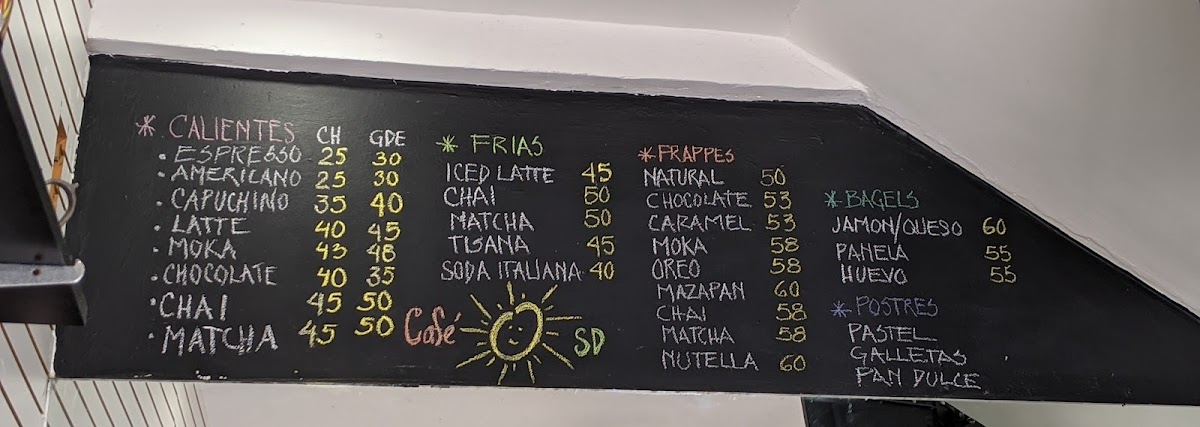 * CALIENTES CH GDE
· ESPRESSO 25 30
· AMERICANO 25 30
· CAPUCHINO 35 40
· LATTE 40 45
· MOKA 43 48
· CHOCOLATE 40 35
· CHAI 45 50
· MATCHA 45 50
* FRIAS
ICED LATTE 45
CHAI 50
MATCHA 50
TISANA 45
SODA ITALIANA 40
Café SD
* FRAPPES
NATURAL 50
CHOCOLATE 53
CARAMEL 53
MOKA 58
OREO 58
MAZAPAN 60
CHAI 58
MATCHA 58
NUTELLA 60
* BAGELS
JAMON/QUESO 60
PANELA 55
HUEVO 55
* POSTRES
PASTEL
GALLETAS
PAN DULCE